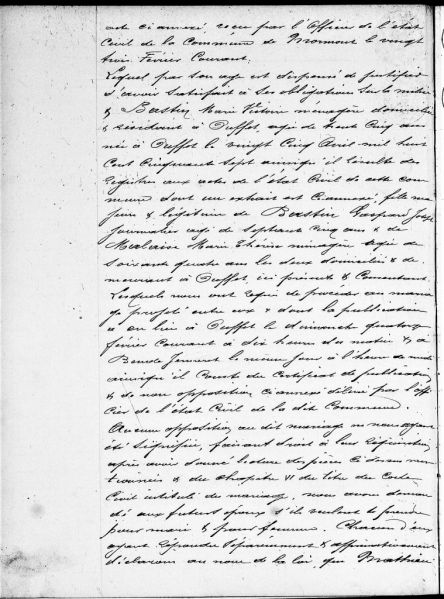 acte ci annexé, reçu par l'Officier de l'état
Civil de la Commune de Mormont le vingt
trois Février Courant.
Lequel par son age est dispensé de justifier
d'avoir satisfait à ses obligations sur la milice
& Bastin Marie Victoire ménagère domiciliée
& résidant à Ouffet, agée de trente Cinq ans
née à Ouffet le vingt Cinq Avril mil huit
Cent Cinquante Sept ainsi qu'il résulte des
registres aux actes de l'état Civil de cette com
mune dont un extrait est ci annexé, fille ma
jeure & légitime de Bastin Gaspard Joseph
journalier agé de Septante Cinq ans & de
Malaise Marie Thérèse ménagère agée de
Soixante quatre ans les deux domiciliés & de
meurant à Ouffet, ici présents & Consentant.
Lesquels nous ont requis de procéder au maria
ge projeté entre eux & dont la publication
a eu lieu à Ouffet le dimanche quatorze
février Courant à dix heures du matin & à
le même jour à l'heure de midi
ainsi qu'il Conste du Certificat de publication
& de non opposition ci annexé délivré par l'offi
cier de l'état Civil de la dite Commune.
Aucune opposition au dit mariage ne nous ayant
été signifiée, faisant droit à leur réquisition
après avoir donné lecture des pièces ci dessus men
tionnées & du chapitre VI du titre du Code
Civil intitulé du mariage, nous avons deman
dé aux futurs époux s'ils veulent se prendre
pour mari & pour femme. Chacun d'eux
ayant répondu Séparément & affirmativement
déclarons au nom de la loi, que Mathieu